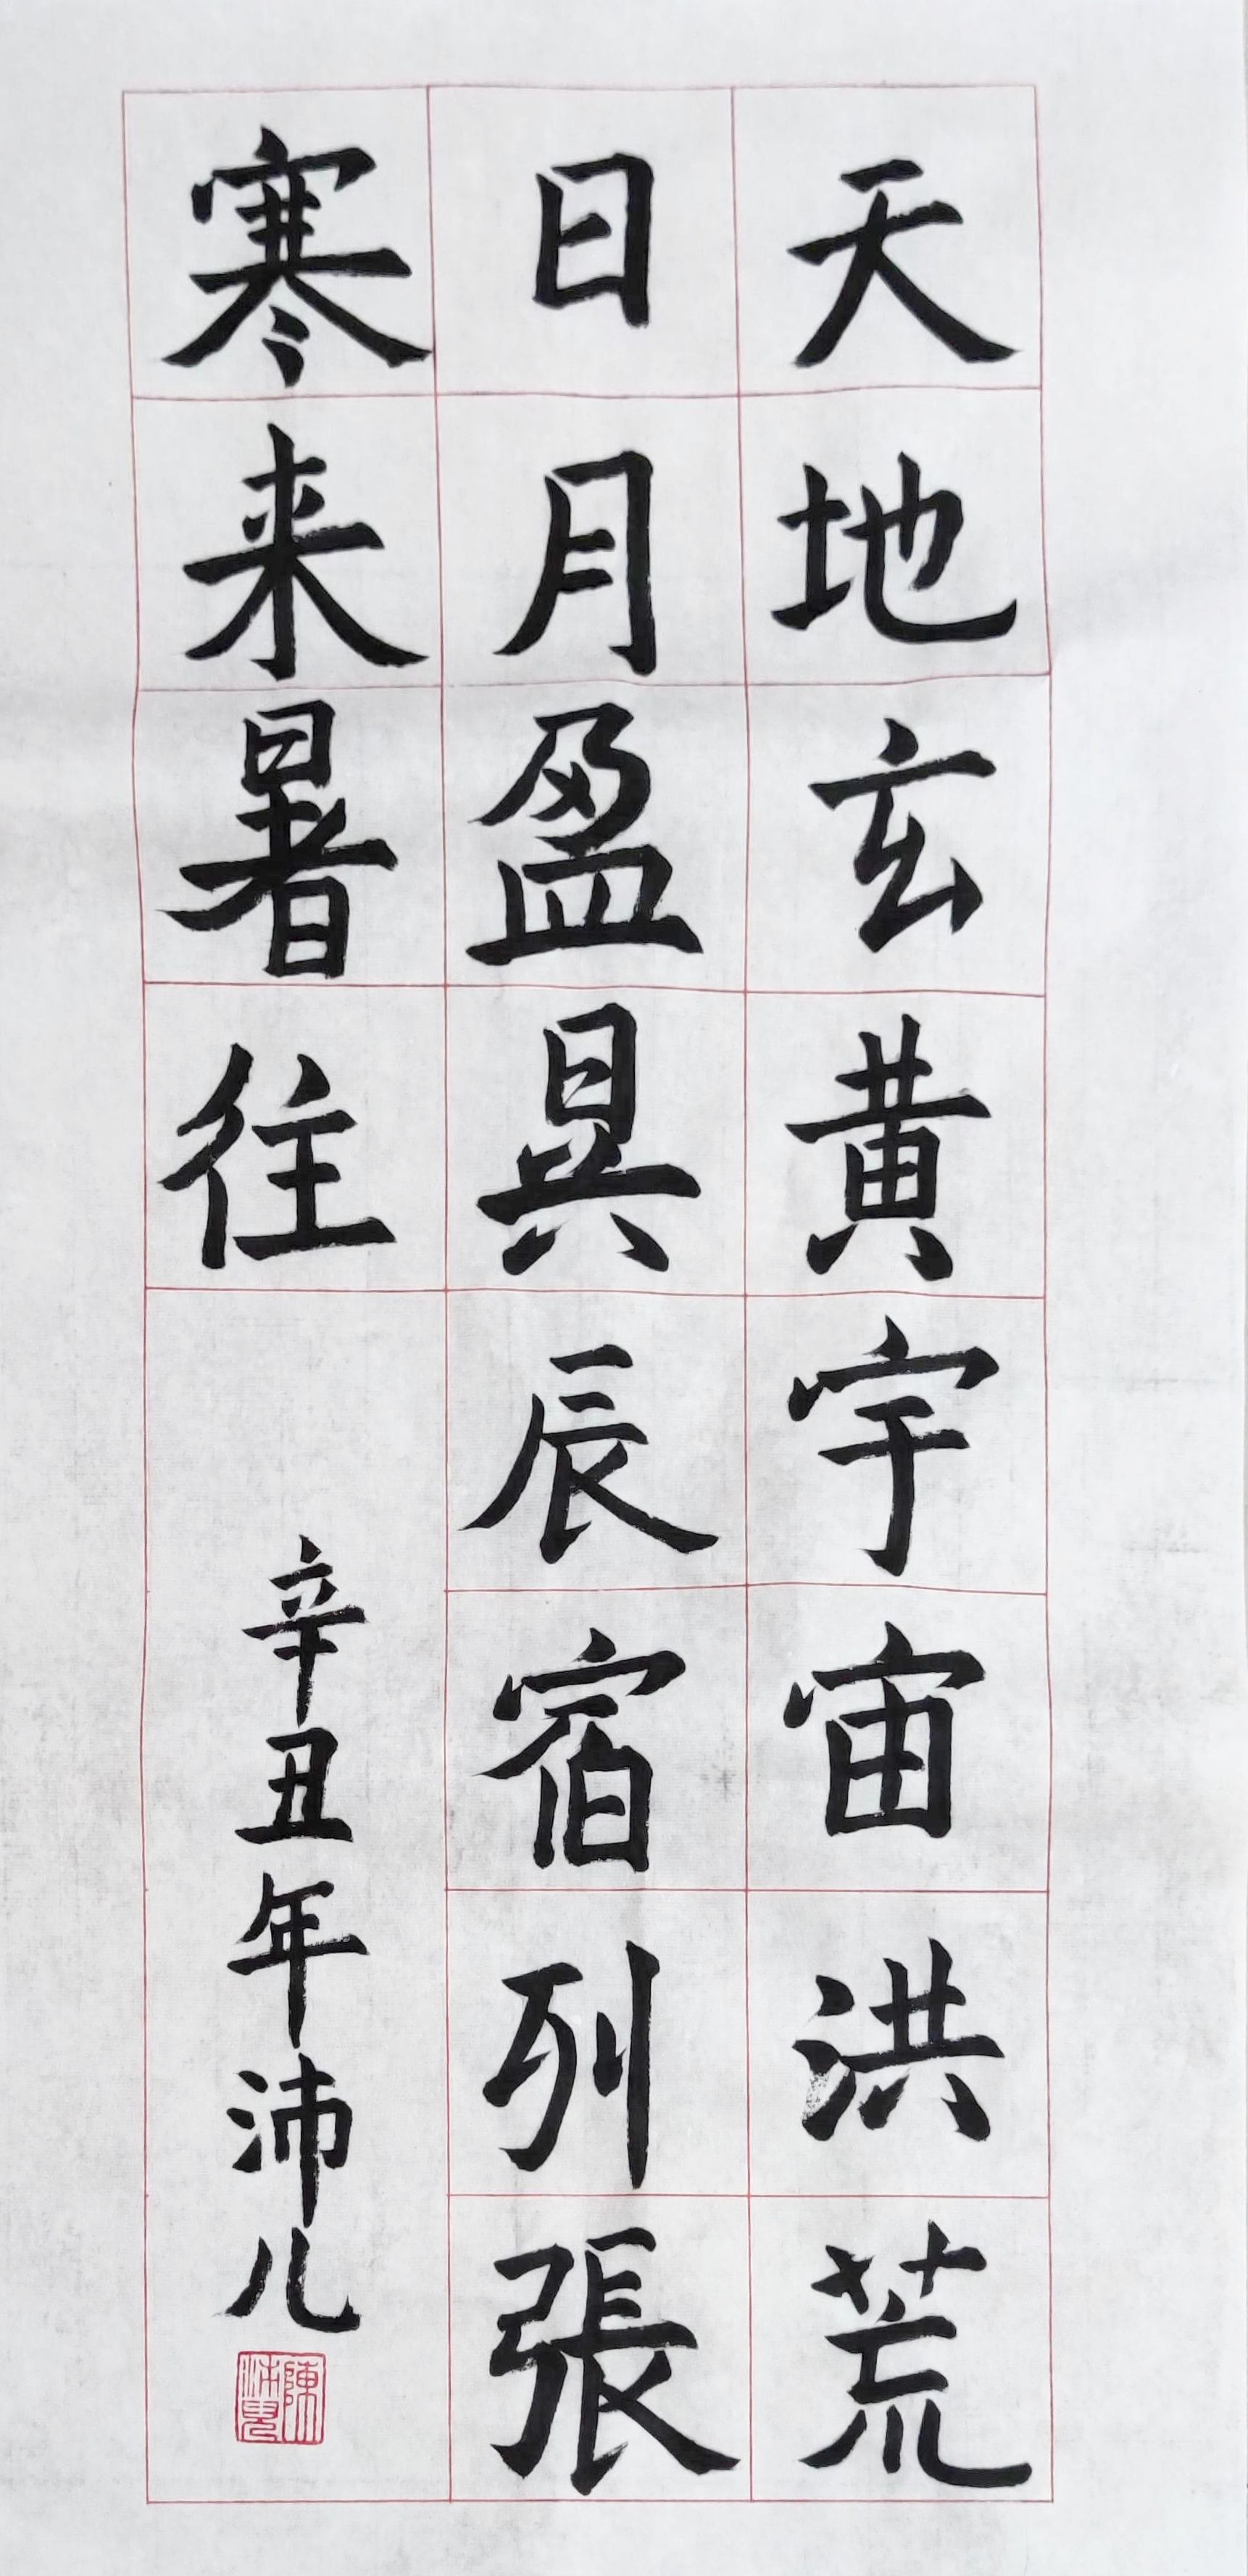 天地玄黄宇宙洪荒
日月盈昃辰宿列張
寒来暑往
辛丑年沛儿
陳沛兒